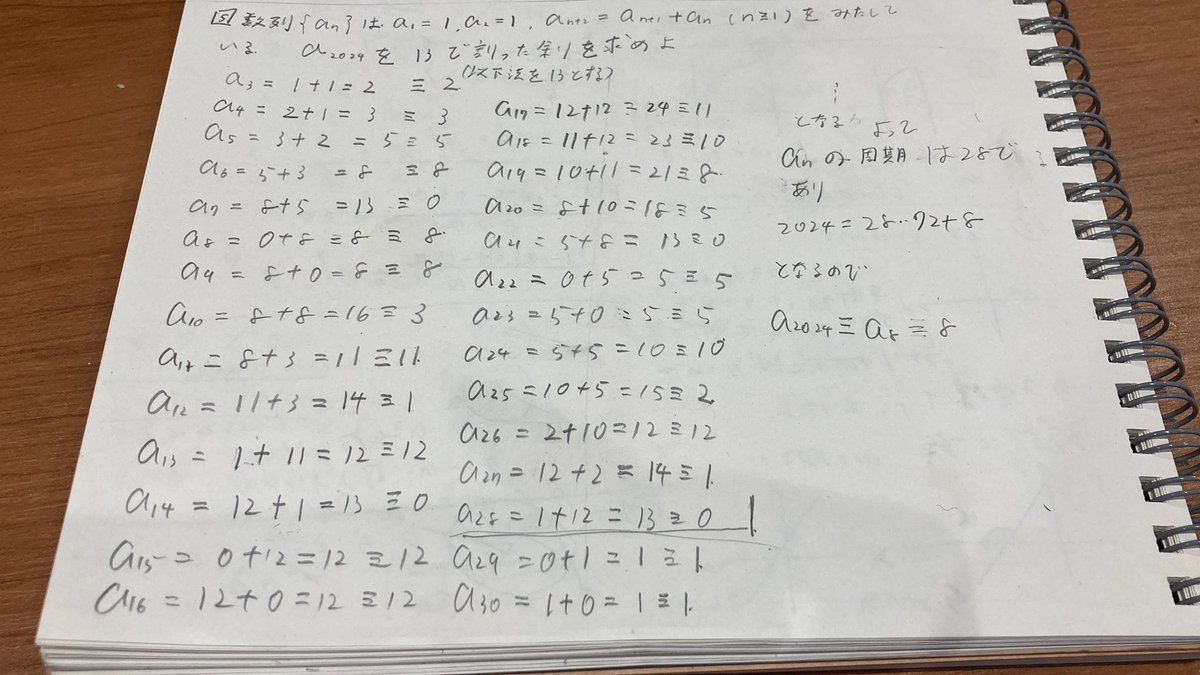 5 数列{an}は a1=1, a2=1, an+2=an+1+an (n≧1)をみたして
いる. a2024を 13で割った余りを求めよ
(以下法を13とする)
a3=1+1=2 ≡2
a4=2+1=3 ≡3
a5=3+2=5≡5
a6=5+3=8 ≡8
a7=8+5=13≡0
a8=0+8=8≡8
a9=8+0=8≡8
a10=8+8=16≡3
a11=8+3=11≡11
a12=11+3=14≡1
a13=1+11=12≡12
a14=12+1=13≡0
a15=0+12=12≡12
a16=12+0=12≡12
a17=12+12=24≡11
a18=11+12=23≡10
a19=10+11=21≡8
a20=8+10=18≡5
a21=5+8=13≡0
a22=0+5=5≡5
a23=5+0=5≡5
a24=5+5=10≡10
a25=10+5=15≡2
a26=2+10=12≡12
a27=12+2=14≡1
a28=1+12=13≡0
a29=0+1=1≡1
a30=1+0=1≡1
⋮
となる よって
anの周期は28で
あり
2024=28・72+8
となるので
a2024≡a8≡8